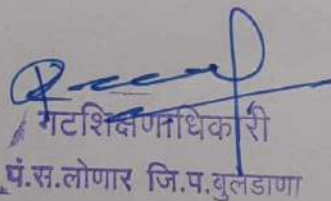 गटशिक्षणाधिकारी
पं.स.लोणार जि.प.बुलडाणा